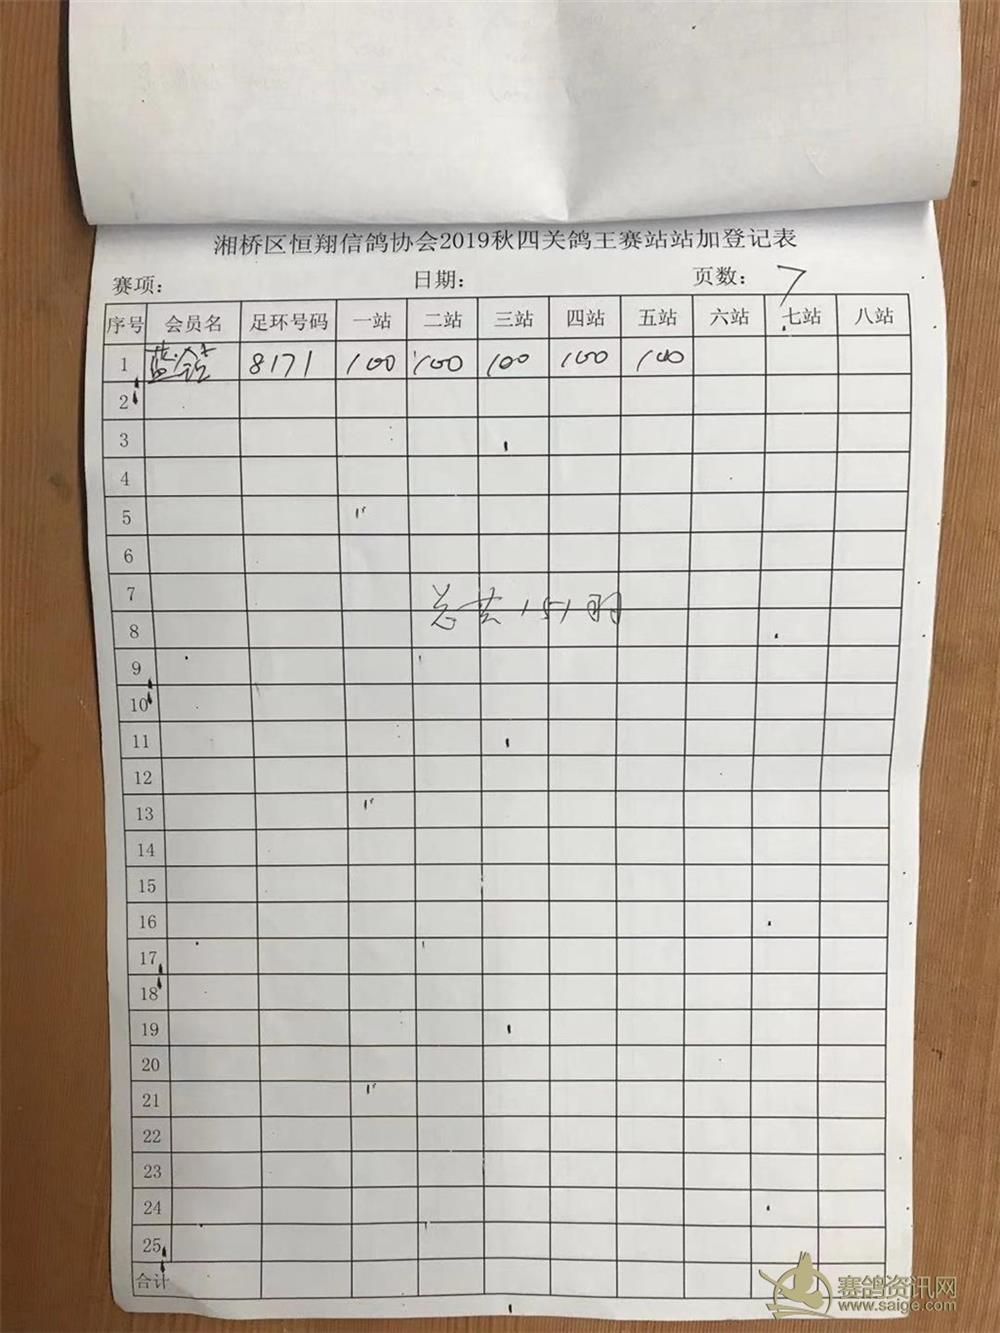 湘桥区恒翔信鸽协会2019秋四关鸽王赛站站加登记表
赛项: 日期: 页数: 7
序号 会员名 足环号码 一站 二站 三站 四站 五站 六站 七站 八站
1 蓝 8171 100 100 100 100 100
2
3
4
5
6
7
总共151羽
8
9
10
11
12
13
14
15
16
17
18
19
20
21
22
23
24
25
合计
赛鸽资讯网
www.saige.com